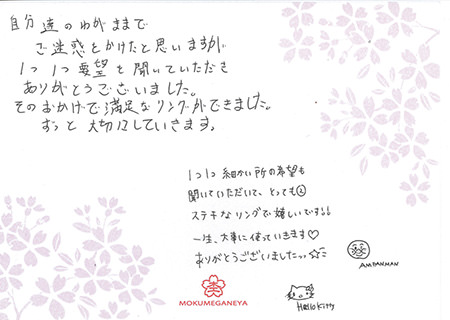 自分達のわがままで
ご迷惑をかけたと思いますが
1つ1つ要望を聞いていただき
ありがとうございました。
そのおかげで満足なリングができました。
ずっと大切にしていきます。
1つ1つ細かい所の希望も
聞いていただいて、とっても②
ステキなリングで嬉しいです!!
一生、大事に使っていきます♡
ありがとうございましたッッ☆ミ
ANPANMAN
Hello Kitty
MOKUMEGANEYA